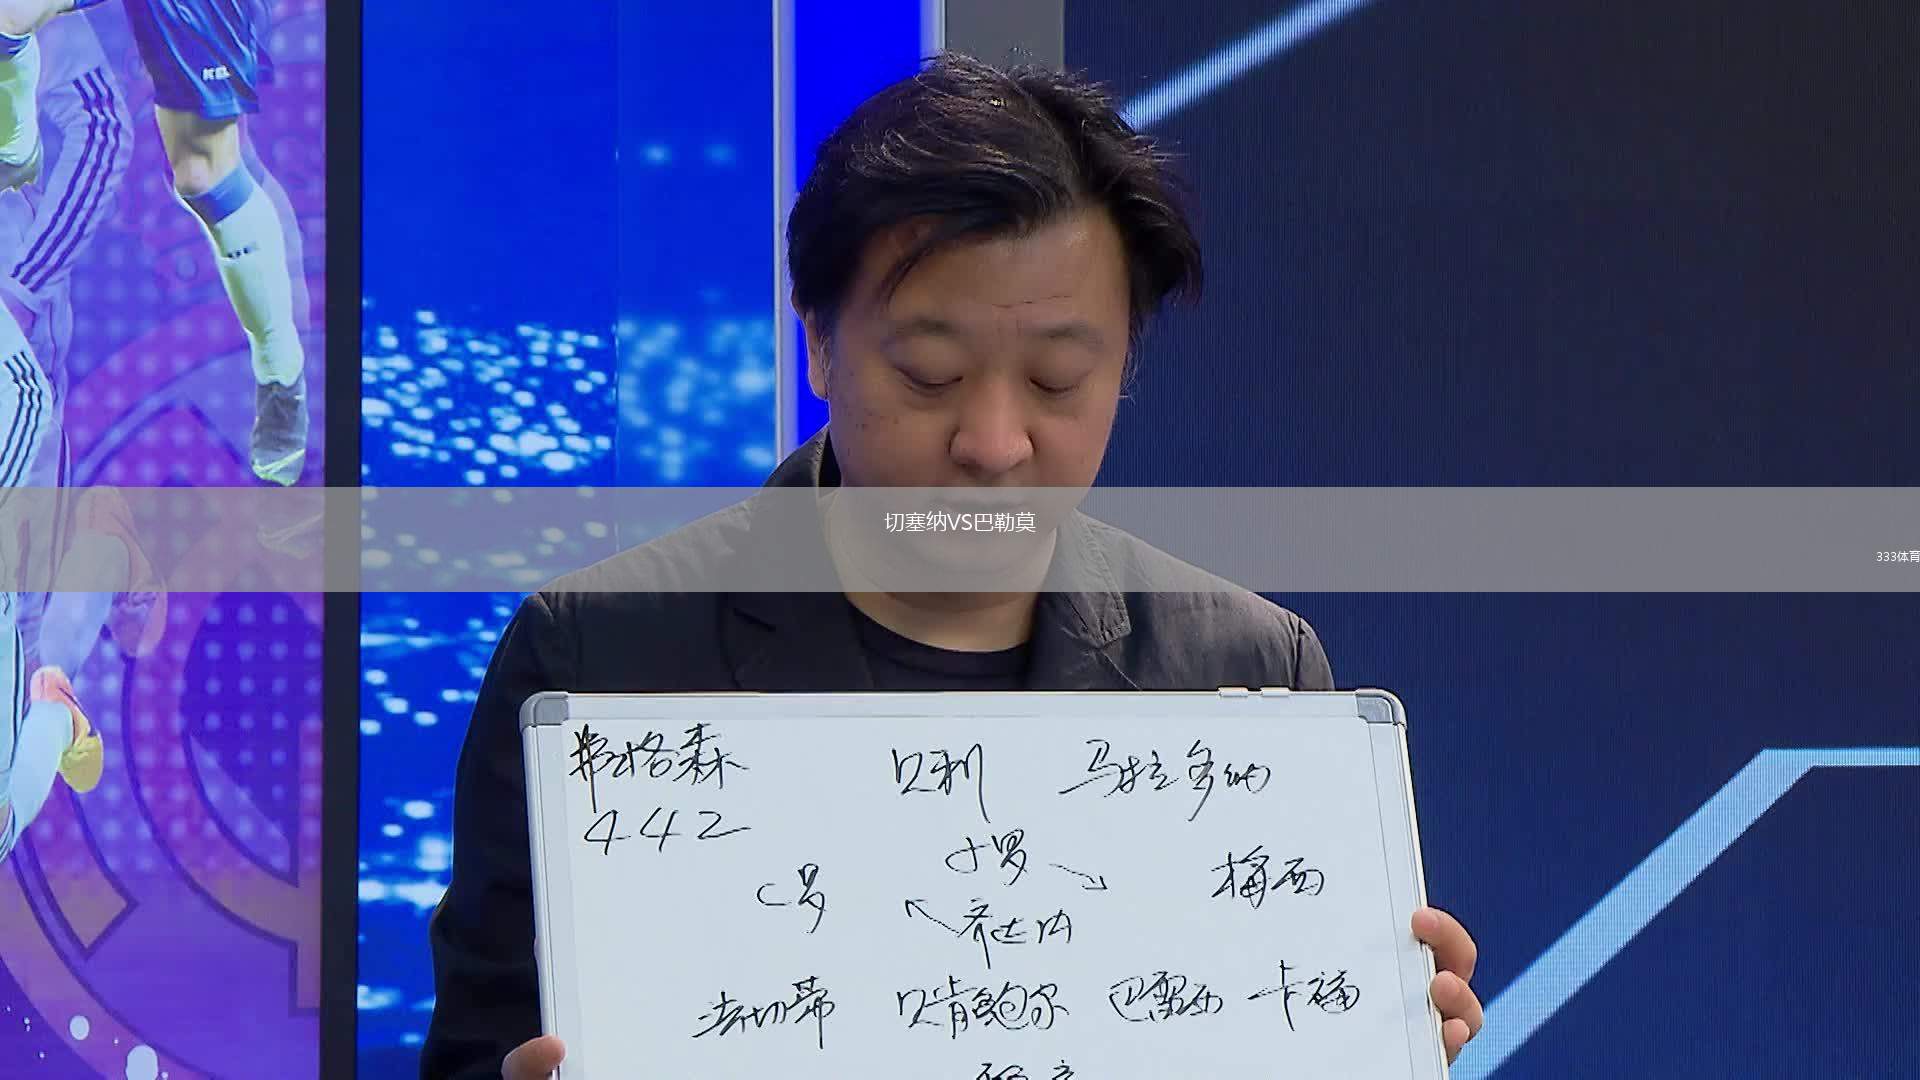 切塞纳VS巴勒莫
333体育
弗格森 贝利 马拉多纳
442
小罗
C罗 梅西
齐达内
法切蒂 贝肯鲍尔 巴雷西 卡福